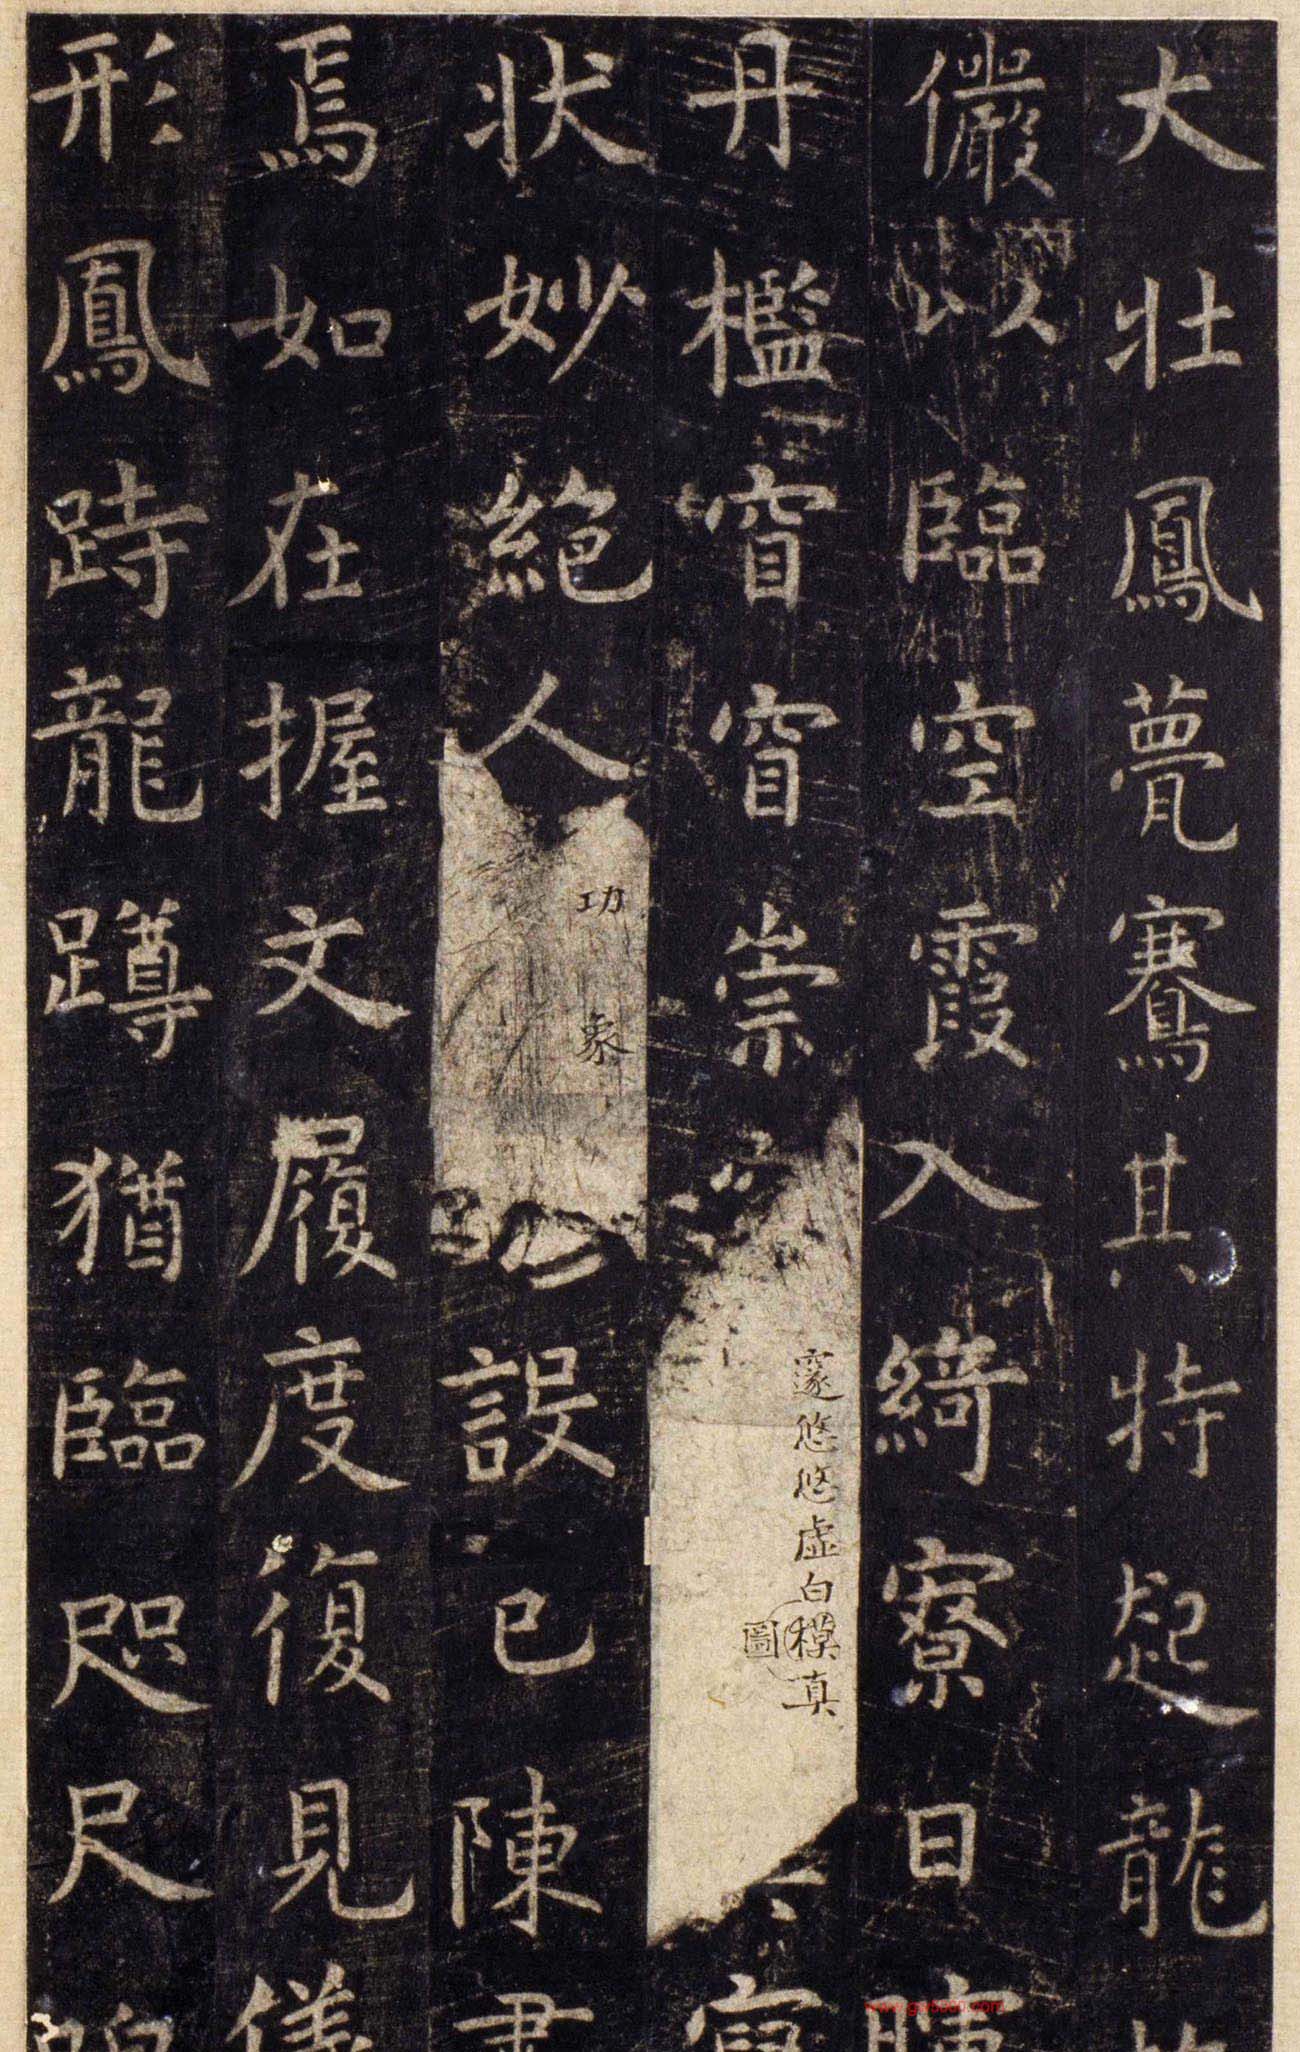 大壯鳳甍騫其特起龍
儼以臨空霞入綺寮日
丹檻窅窅崇
邃悠悠虛白模真
圖
狀妙絕人
功
象
設已陳肅
焉如在握文履度復見儀
形鳳跱龍蹲猶臨咫尺
www.gsr5000.com